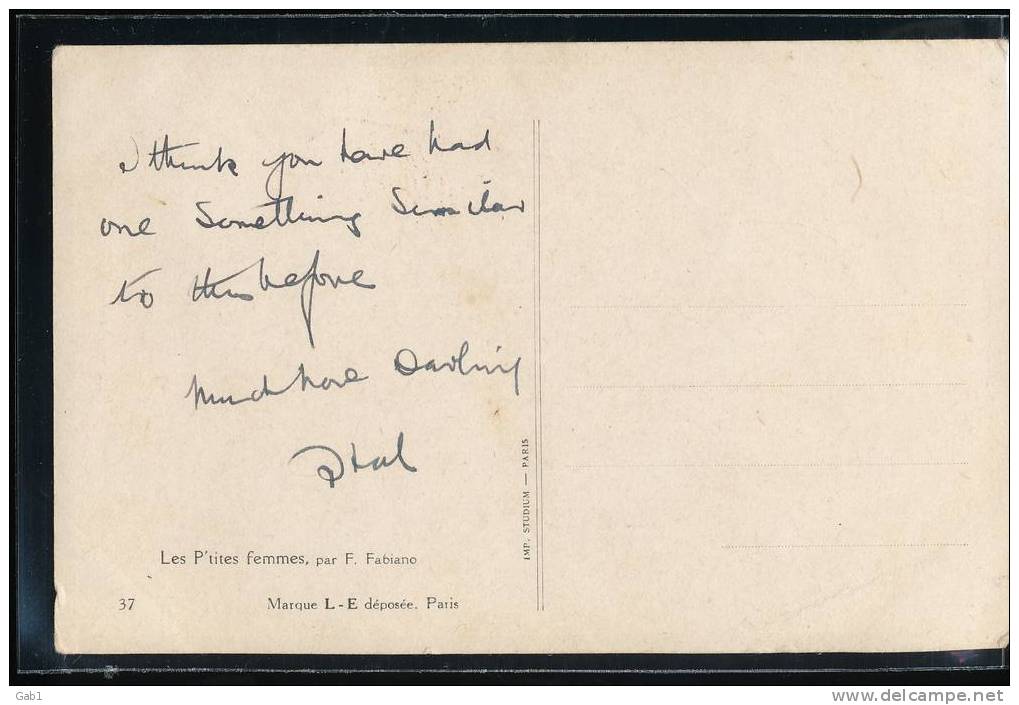 I think you have had
one Something Similar
to this before
Much love Darling
Hal
Les P'tites femmes, par F. Fabiano
37 Marque L-E déposée. Paris
IMP. STUDIUM — PARIS
Gab1
www.delcampe.net